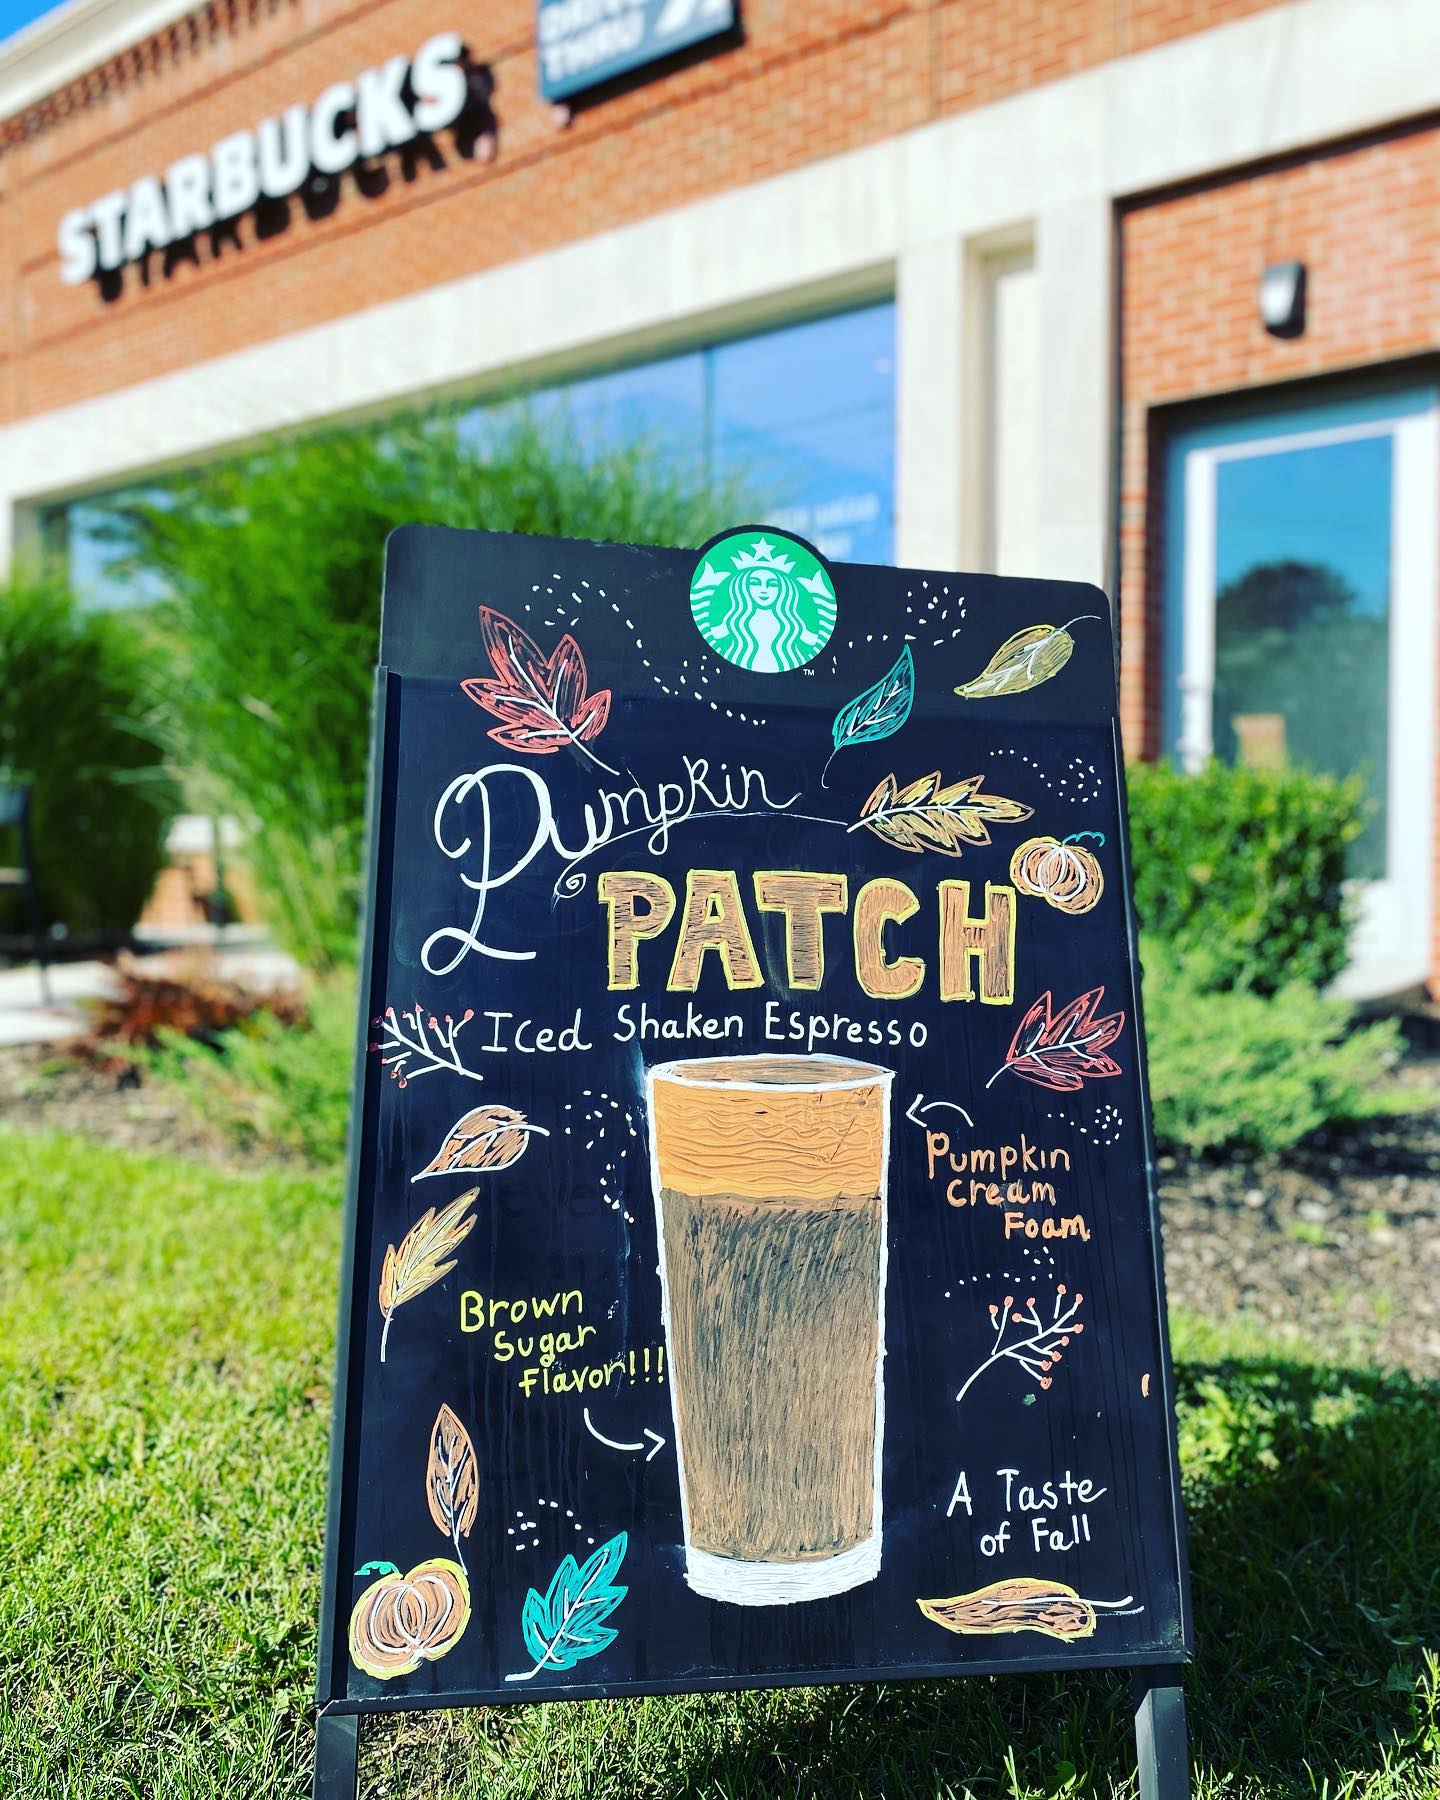 DRIVE
THRU
STARBUCKS
TM
Pumpkin
PATCH
Iced Shaken Espresso
Pumpkin
Cream
Foam
Brown
Sugar
flavor!!!
A Taste
of Fall